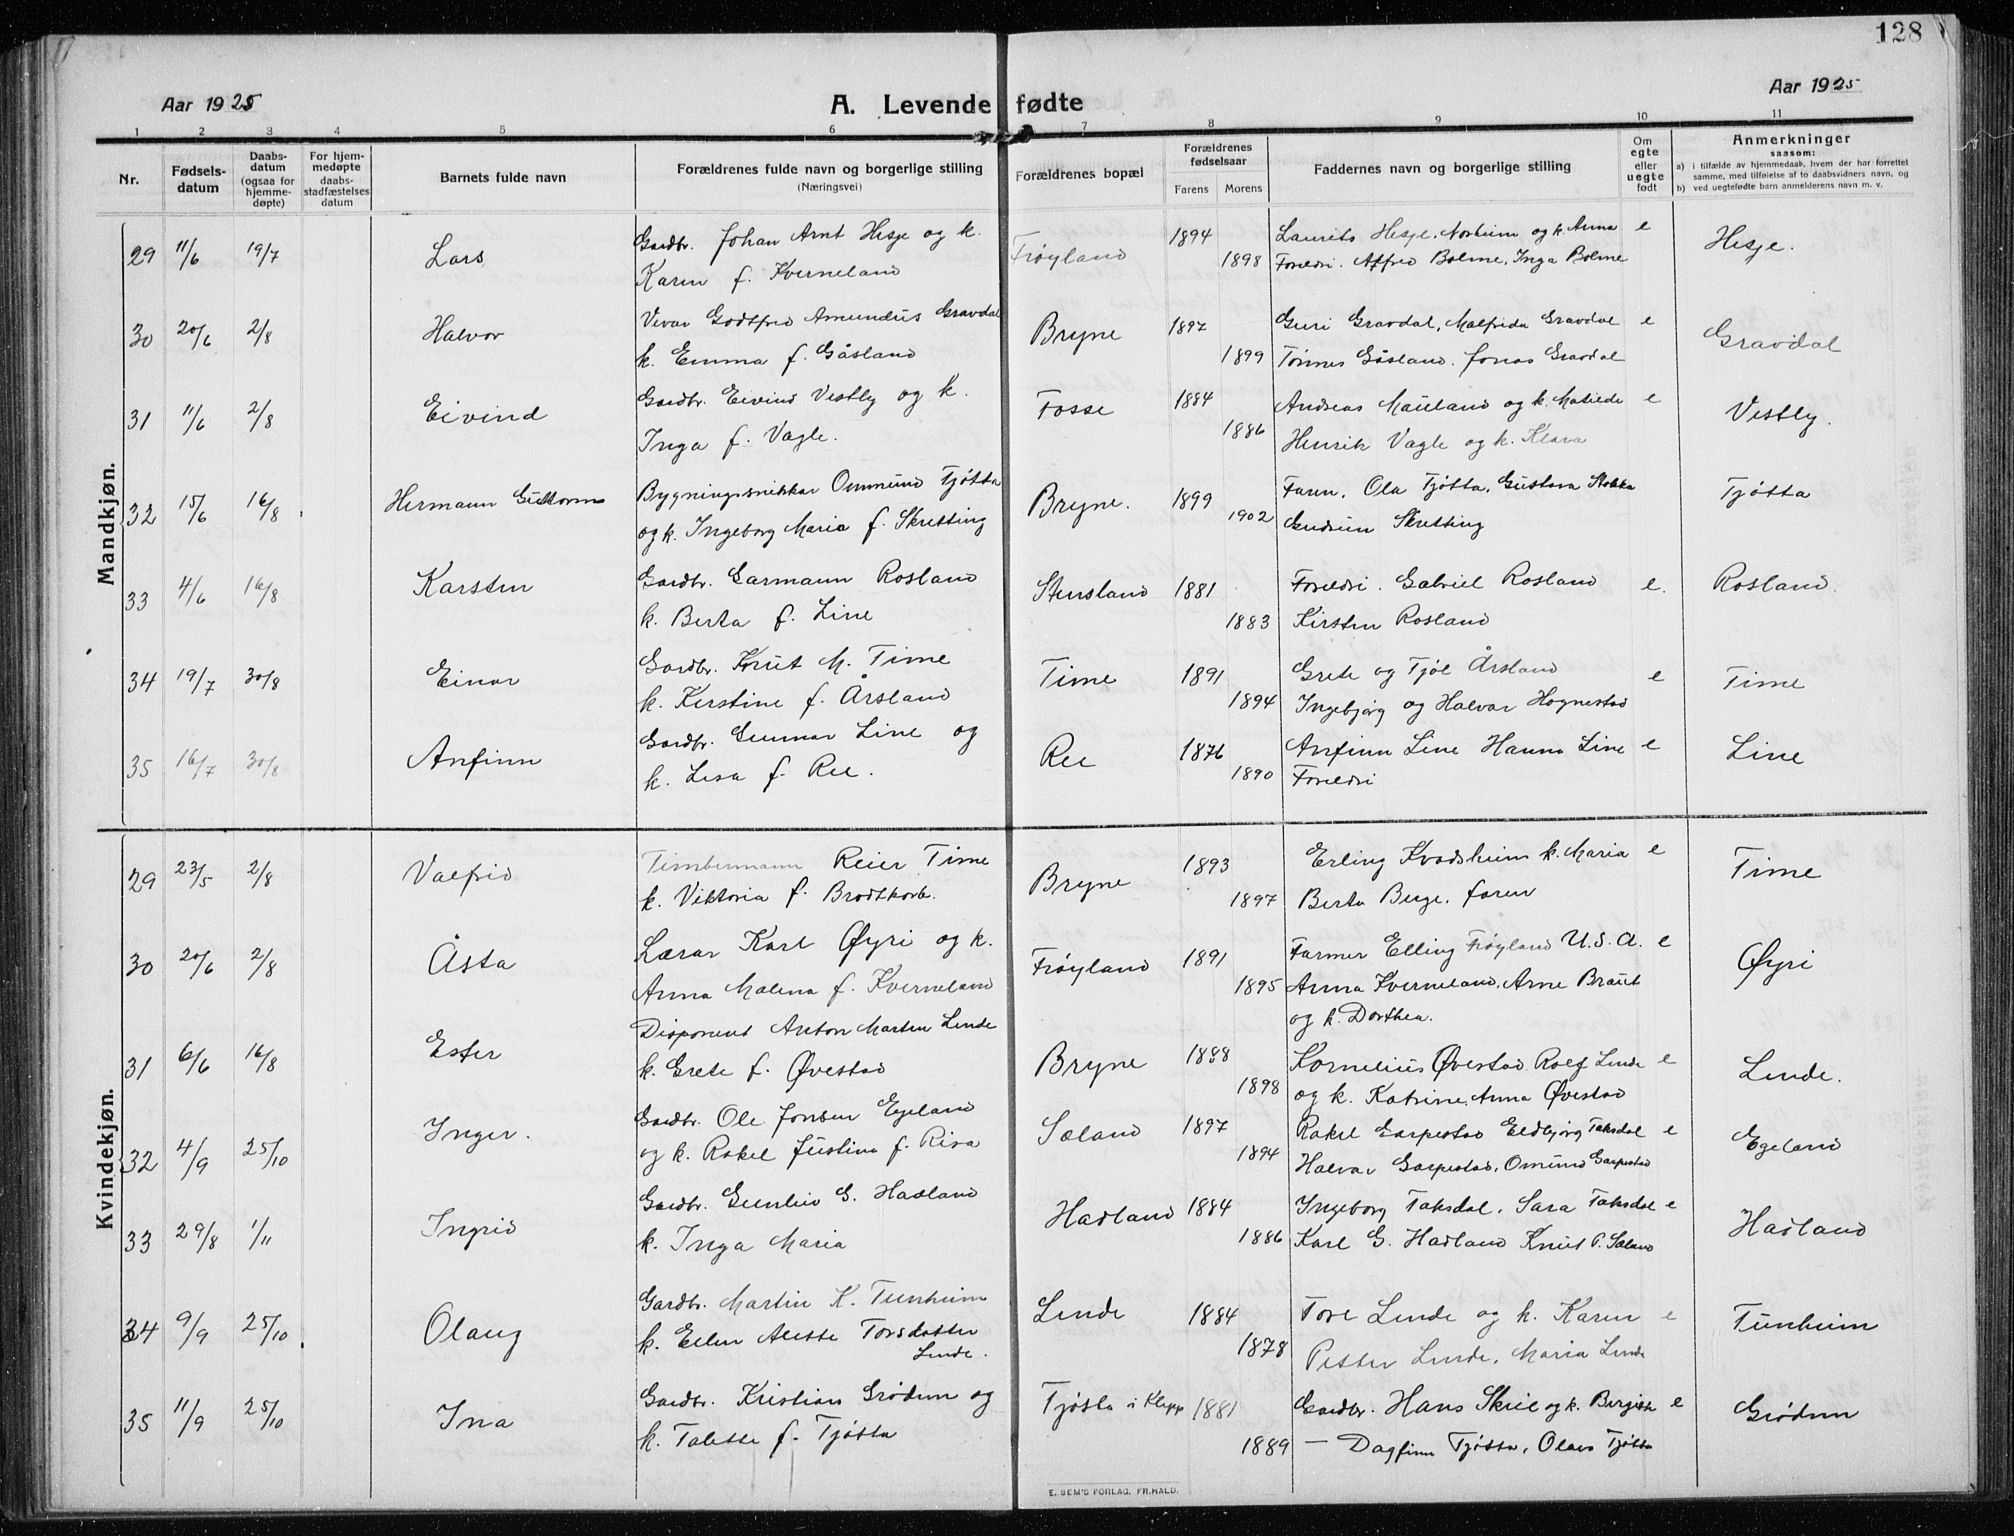 128
Aar 1925
A. Levende fødte
Aar 1925
1 2 3 4 5 6 7 8 9 10 11
Nr.
Fødsels-
datum
Daabs-
datum
(ogsaa for
hjemme-
døpte)
For hjem-
medøpte
daabs-
stadfæstelses
datum
Barnets fulde navn
Forældrenes fulde navn og borgerlige stilling
(Næringsvei)
Forældrenes bopæl
Forældrenes
fødselsaar
Farens. Morens
Faddernes navn og borgerlige stilling
Om
egte
eller
uegte
født
Anmerkninger
saasom:
a) i tilfælde av hjemmedaab, hvem der har forrettet
samme, med tilføielse af to daabsvidners navn, og
b) ved uegtefødte barn anmelderens navn m. v.
Mandkjøn.
29 11/6 19/7 Lars Gardbr. Johan Arnt Hesje og k. Frøyland 1894 Laurits Hesje, Norheim og k. Anna e Hesje.
Karen f. Kverneland 1898 Foreldri. Alfred Bolme, Inga Bolme
30 20/6 2/8 Halvor Vevar Godtfred Amundus Gravdal Bryne 1897 Guri Gravdal, Malfrida Gravdal e Gravdal
k. Emma f. Gåsland 1899 Tønnes Gåsland. Jonas Gravdal
31 11/6 2/8 Eivind Gardbr. Eivind Vestly og k. Fosse 1884 Andreas Mauland og k. Matilde e Vestly.
Inga f. Vagle. 1886 Henrik Vagle og k. Klara
32 15/6 16/8 Hermann Guttorm Bygningssnikkar Ommund Tjøtta Bryne. 1899 Faren, Ola Tjøtta, Gustava Stokka Tjøtta
og k. Ingeborg Maria f. Skretting 1902 Gudrun Skretting
33 4/6 16/8 Karsten Gardbr. Garmann Rosland Stensland 1881 Foreldri. Gabriel Rosland e. Rosland.
k. Berta f. Line 1883 Kirsten Rosland
34 19/7 30/8 Einar Gardbr. Knut M. Time Time 1891 Grete og Tjøl Årsland e Time
k. Kerstine f. Årsland 1894 Ingebjørg og Halvar Hognestad
35 16/7 30/8 Anfinn Gardbr. Gunnar Line og Ree 1876 Anfinn Line Hanna Line e Line
k. Lisa f. Ree. 1890 Foreldri
Kvindekjøn.
29 23/5 2/8 Valfrid Timbermann Reier Time Bryne 1893 Erling Kvadsheim k. Maria e Time
k. Viktoria f. Brodtkorb. 1897 Berta Berge, faren
30 20/6 2/8 Åsta Lærar Karl Øyri og k. Frøyland 1891 Farmer Elling Frøyland U.S.A. e Øyri
Anna Malena f. Kverneland 1895 Anna Kverneland, Arne Braut
og k. Dorthea.
31 6/6 16/8 Ester Disponent Anton Martin Lende Bryne 1888 Kornelius Øvestad Rolf Lende e Lende.
k. Grete f. Øvestad 1898 og k. Katrine, Anna Øvestad
32 4/9 25/10 Inger. Gardbr. Ole Jonsen Egeland Sæland 1897 Rakel Garpestad Eldbjørg Taksdal e Egeland
og k. Rakel Justina f. Risa 1894 Halvar Garpestad, Omund Garpestad
33 29/8 1/11 Ingrid Gardbr. Gunleiv G. Hadland Hadland 1884 Ingeborg Taksdal, Sara Taksdal e Hadland
k. Inga Maria 1886 Karl G. Hadland Knut P. Sæland
34 9/9 25/10 Olaug Gardbr. Martin K. Tunheim Lende 1884 Tore Lende og k. Karen e Tunheim
k. Ellen Alette Torsdatter 1878 Petter Lende, Maria Lende
Lende.
35 11/9 25/10 Ina Gardbr. Kristian Grødem og Tjøtta i Klepp 1881 Gardbr. Hans Skeie og k. Bergitte e Grødem
k. Talette f. Tjøtta 1889 — Dagfinn Tjøtta, Olav Tjøtta
E. SEM'S FORLAG. FR.HALD.